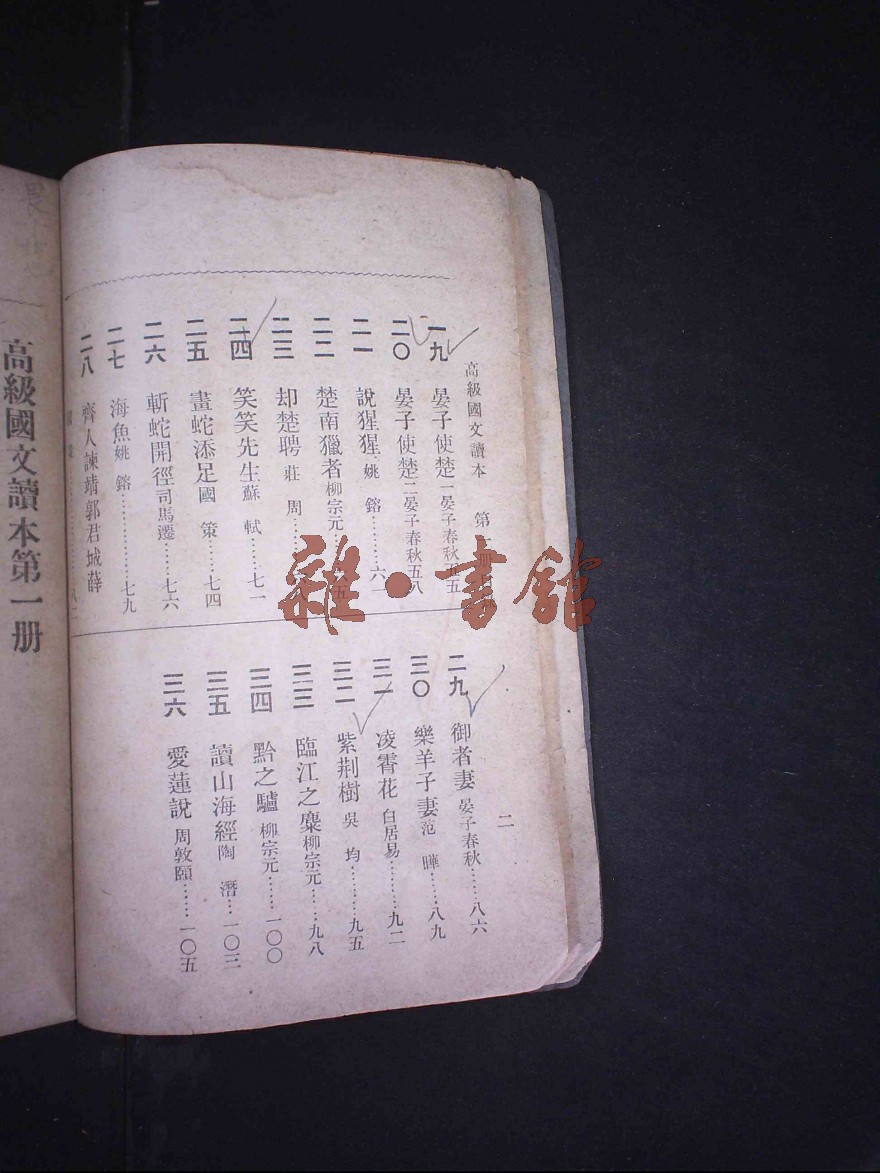 高級國文讀本 第一册
一九 晏子使楚一 晏子春秋 五五
二〇 晏子使楚二 晏子春秋 五八
二一 說猩猩 姚鎔……六一
二二 楚南獵者 柳宗元……六五
二三 却楚聘 莊周……
二四 笑笑先生 蘇軾……七一
二五 畫蛇添足 國策……七四
二六 斬蛇開徑 司馬遷……七六
二七 海魚 姚鎔……七九
二八 齊人諫靖郭君城薛
……八二
二九 御者妻 晏子春秋……八六
三〇 樂羊子妻 范曄……八九
三一 凌霄花 白居易……九二
三二 紫荆樹 吳均……九五
三三 臨江之麋 柳宗元……九八
三四 黔之驢 柳宗元……一〇〇
三五 讀山海經 陶潛…一〇三
三六 愛蓮說 周敦頤……一〇五
二
高級國文讀本第一册
雜·書館